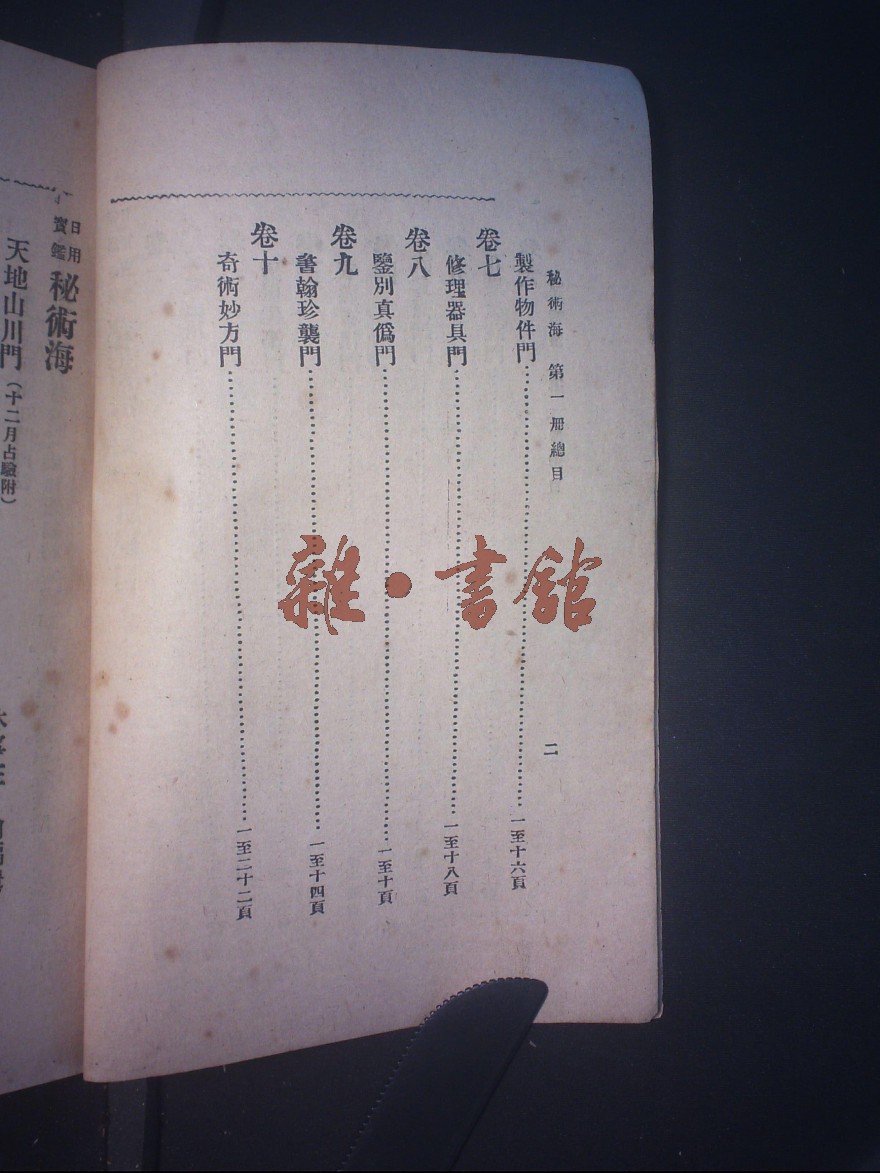 秘術海 第一冊總目 二
製作物件門 一至十六頁
卷七
修理器具門 一至十八頁
卷八
鑒別真僞門 一至十頁
卷九
書翰珍襲門 一至十四頁
卷十
奇術妙方門 一至二十二頁
雜·書館
日用寶鑑 秘術海
天地山川門（十二月占驗附）